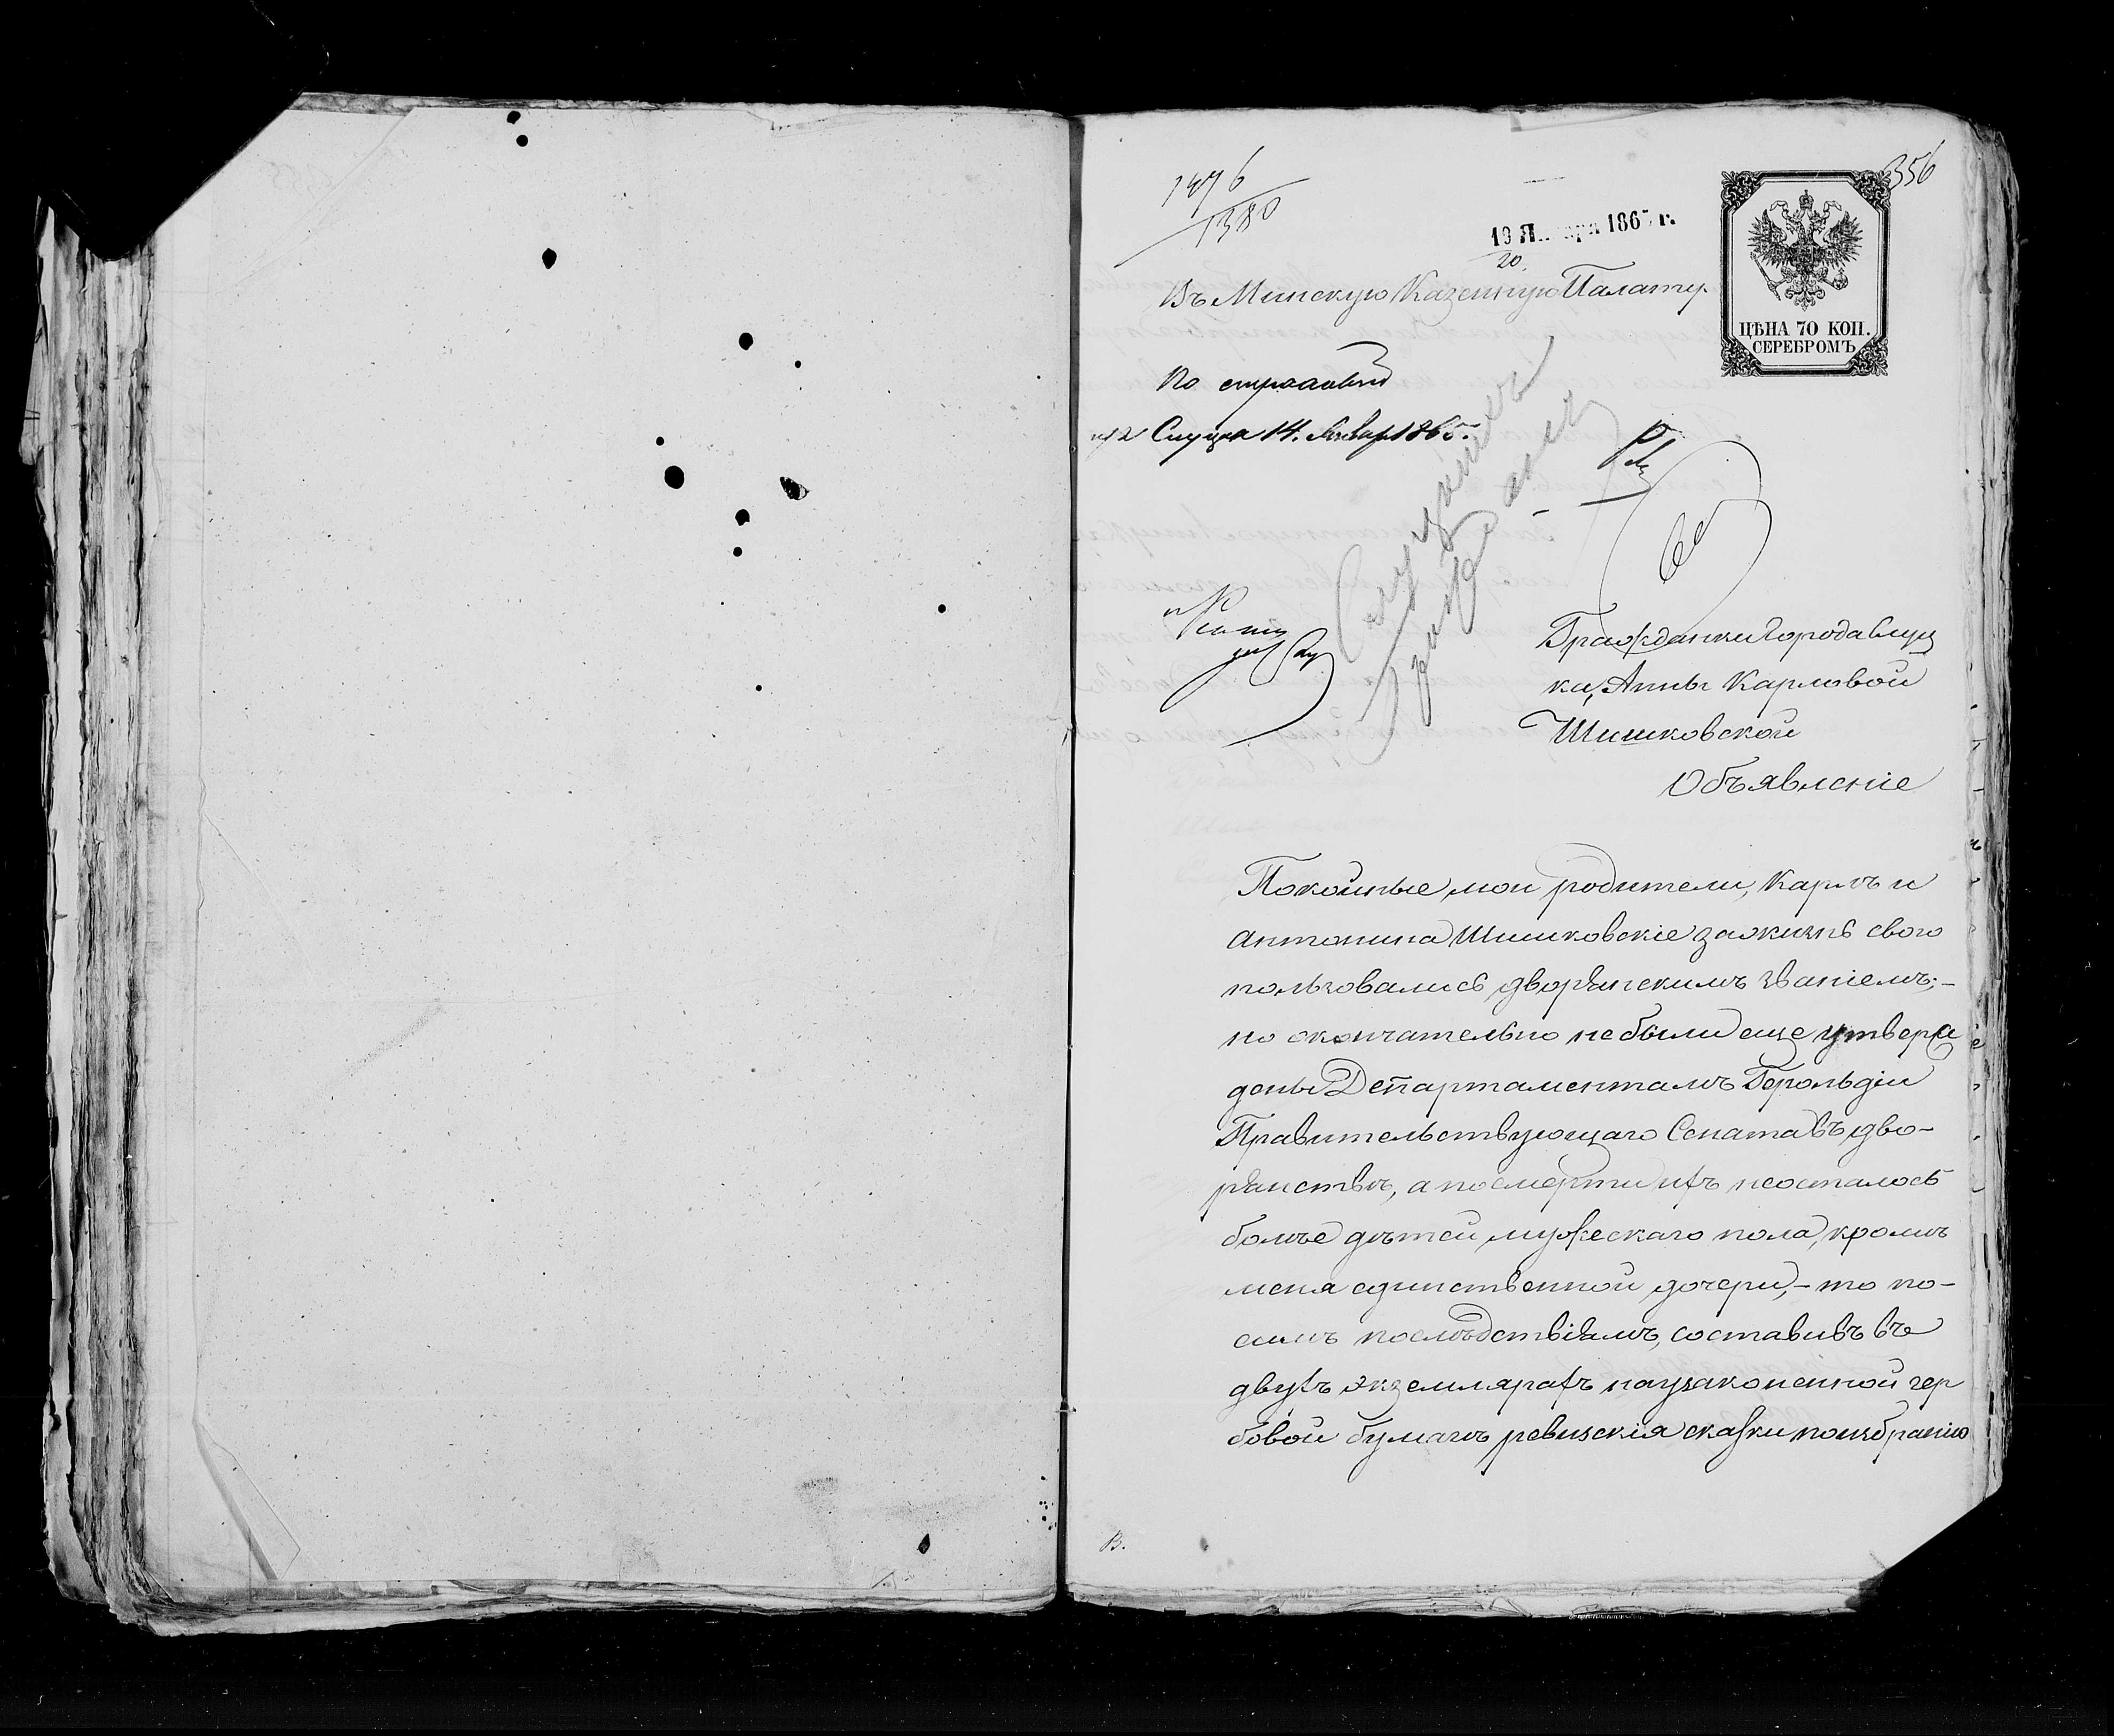 356
1476
1380
19 Января 1867 г.
20.
Въ Минскую Казенную Палату.
ЦѢНА 70 КОП.
СЕРЕБРОМЪ
По страховой
изъ Слуцка 14. Января 1865.
Гражданки города Слуц
ка, Анны Карловой
Шишковской
Объявленіе
Покойные мои родители, Карлъ и
Антонина Шишковскіе за жизнь свою
пользовались дворянскимъ званіемъ; –
но окончательно не были еще утверж
дены Департаментамъ Герольдіи
Правительствующаго Сената въ дво-
рянствѣ, а по смерти ихъ неосталось
болѣе дѣтей мужескаго пола, кромѣ
меня единственной дочери, – то по-
симъ послѣдствіямъ, составивъ въ
двухъ экземлярахъ на узаконенной гер
бовой бумагѣ ревизскія сказки по избранію
В.